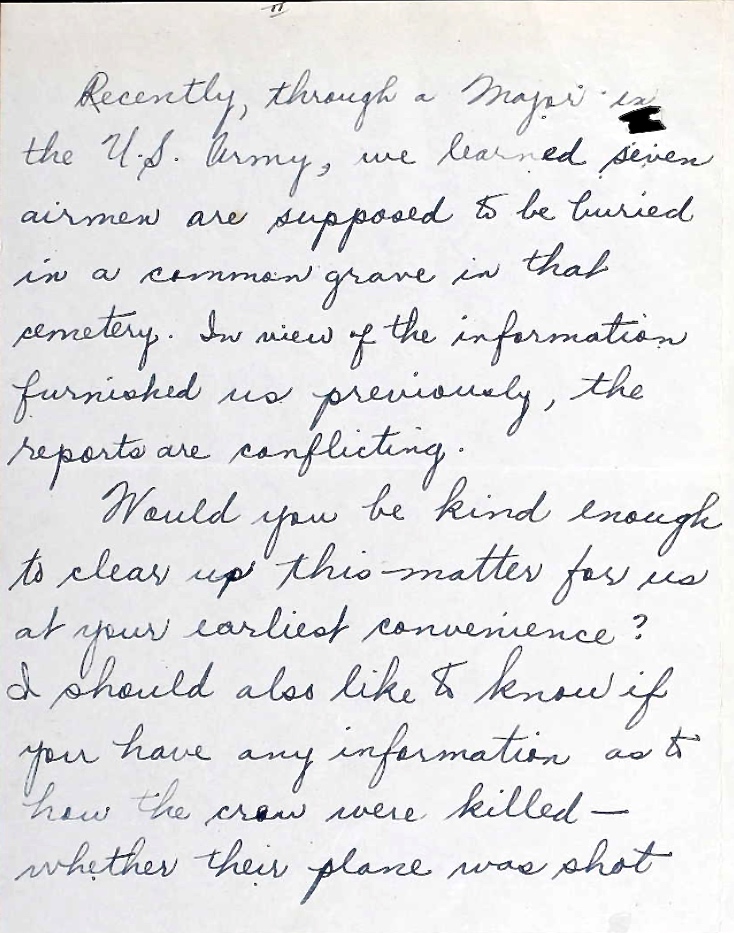 II
Recently, through a Major in
the U.S. Army, we learned seven
airmen are supposed to be buried
in a common grave in that
cemetery. In view of the information
furnished us previously, the
reports are conflicting.
Would you be kind enough
to clear up this matter for us
at your earliest convenience?
I should also like to know if
you have any information as to
how the crew were killed—
whether their plane was shot